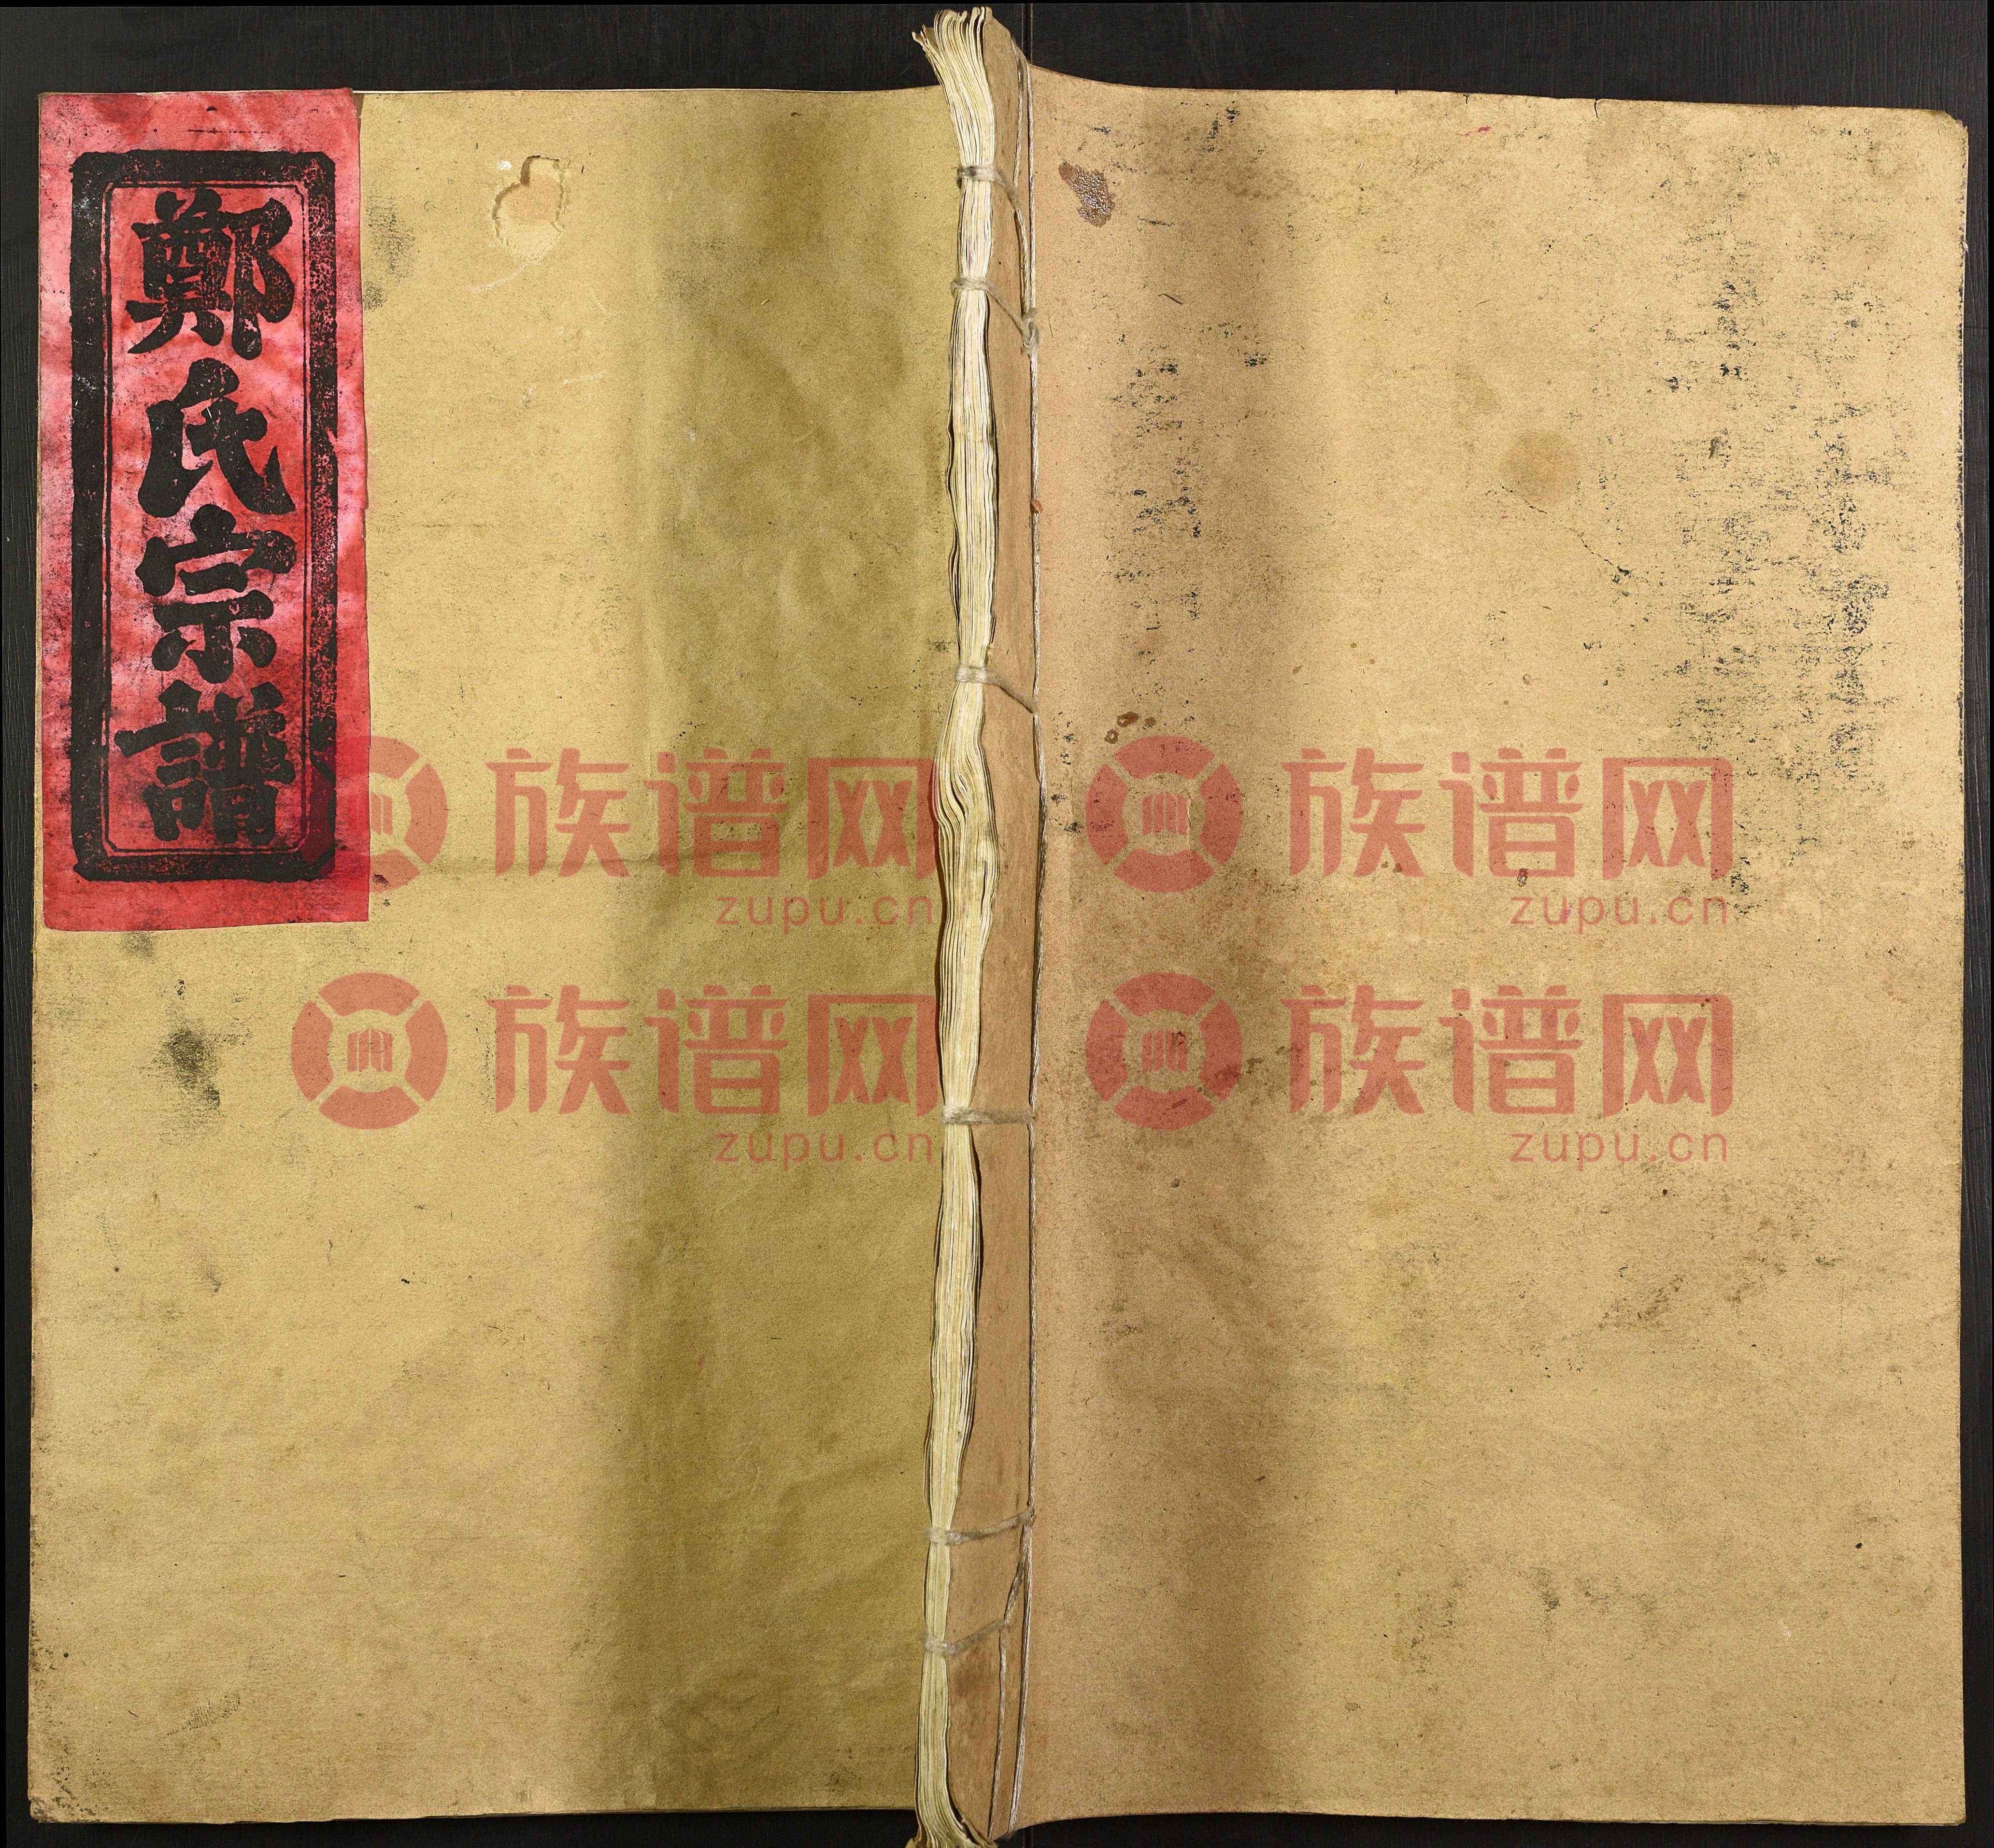 鄭氏宗譜
族谱网
zupu.cn
族谱网
zupu.cn
族谱网
zupu.cn
族谱网
zupu.cn